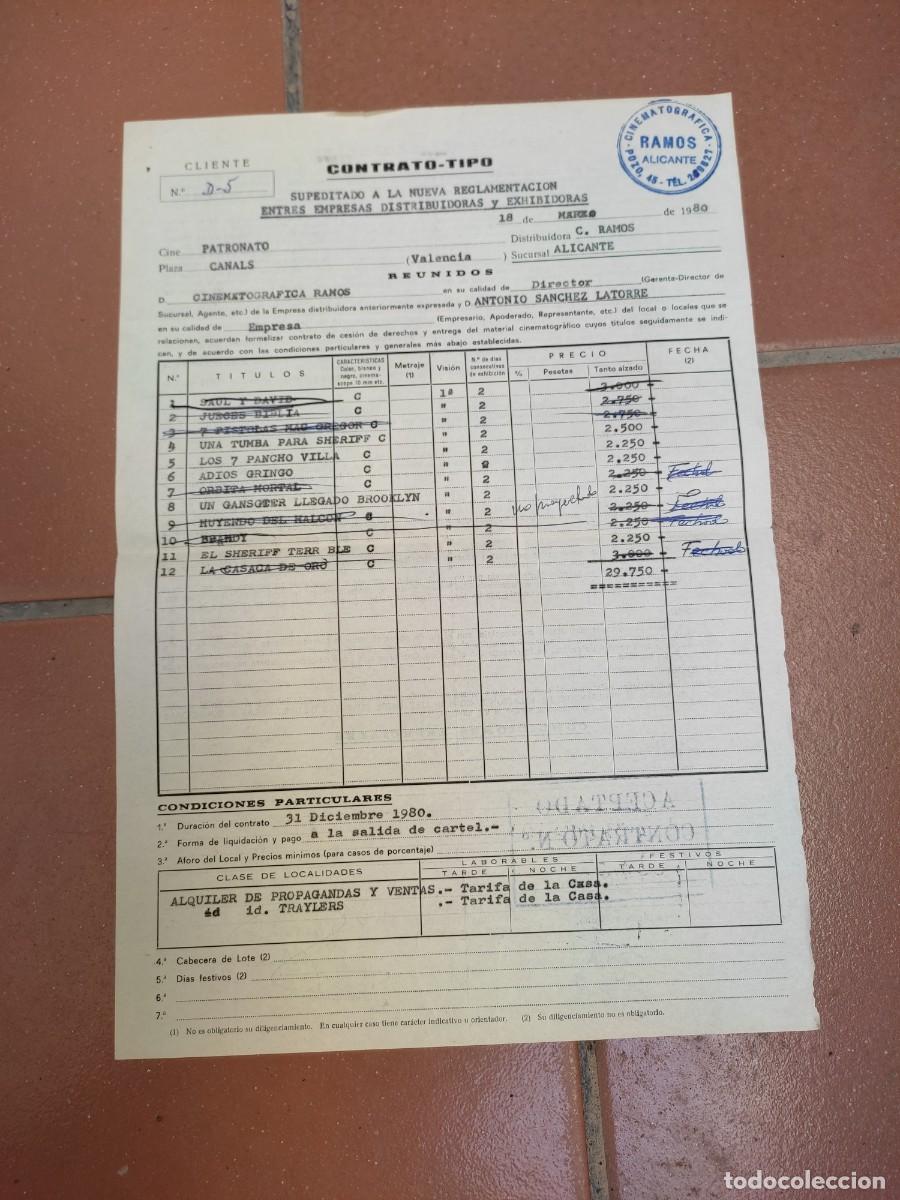 CLIENTE
N.º D-5
CONTRATO-TIPO
CINEMATOGRAFICA
RAMOS
ALICANTE
POZO, 45 - TEL.
SUPEDITADO A LA NUEVA REGLAMENTACION
ENTRES EMPRESAS DISTRIBUIDORAS y EXHIBIDORAS
18 de MARZO de 1980
Cine PATRONATO Distribuidora C. RAMOS
Plaza CANALS (Valencia) Sucursal ALICANTE
REUNIDOS
D. CINEMATOGRAFICA RAMOS en su calidad de Director (Gerente-Director de
Sucursal, Agente, etc.) de la Empresa distribuidora anteriormente expresada y D. ANTONIO SANCHEZ LATORRE
en su calidad de Empresa (Empresario, Apoderado, Representante, etc.) del local o locales que se
relacionen, acuerdan formalizar contrato de cesión de derechos y entrega del material cinematográfico cuyos títulos seguidamente se indi-
can, y de acuerdo con las condiciones particulares y generales más abajo establecidas.
N.º TITULOS CARACTERISTICAS Color, blanco y negro, cinemascope 16 mm etc. Metraje (1) Visión N.º de días consecutivos de exhibición PRECIO % Pesetas Tanto alzado FECHA (2)
1 SAUL Y DAVID C 1ª 2 3.000
2 JUECES BIBLIA C " 2 2.750
3 7 PISTOLAS MAC GREGOR C " 2 2.750
4 UNA TUMBA PARA SHERIFF C " 2 2.500
5 LOS 7 PANCHO VILLA C " 2 2.250
6 ADIOS GRINGO C " 2 2.250
7 ORBITA MORTAL C " 2 2.250
8 UN GANSGTER LLEGADO BROOKLYN " 2 2.250
9 HUYENDO DEL HALCON C " 2 2.250
10 BRANDY C " 2 2.250
11 EL SHERIFF TERR BLE C " 2 2.250
12 LA CASACA DE ORO C " 2 3.000
29.750
===========
CONDICIONES PARTICULARES
1.ª Duración del contrato 31 Diciembre 1980.
2.ª Forma de liquidación y pago a la salida de cartel.-
3.ª Aforo del Local y Precios mínimos (para casos de porcentaje)
CLASE DE LOCALIDADES LABORABLES TARDE NOCHE FESTIVOS TARDE NOCHE
ALQUILER DE PROPAGANDAS Y VENTAS.- Tarifa de la Casa.
id id. TRAYLERS .- Tarifa de la Casa.
ACEPTADO
CONTRATO N.º
4.ª Cabecera de Lote (2)
5.ª Días festivos (2)
6.ª
7.ª
(1) No es obligatorio su diligenciamiento. En cualquier caso tiene carácter indicativo u orientador. (2) Su diligenciamiento no es obligatorio.
todocoleccion